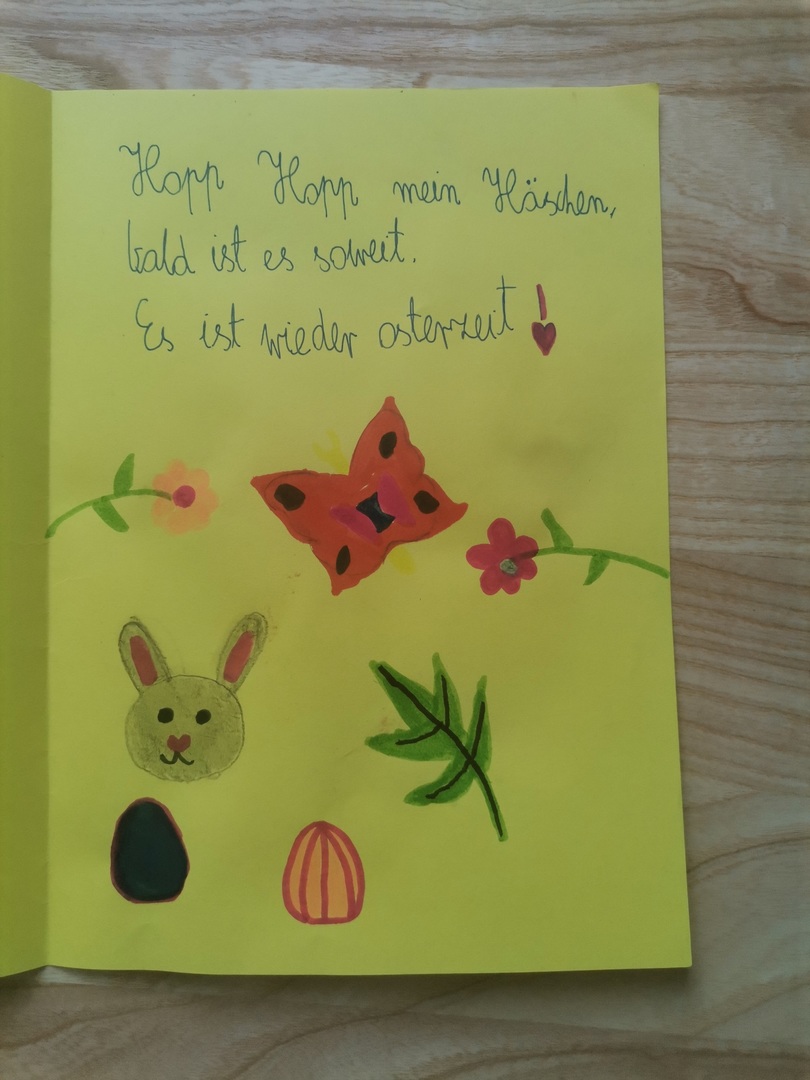 Hopp Hopp mein Häschen,
bald ist es soweit.
Es ist wieder osterzeit!